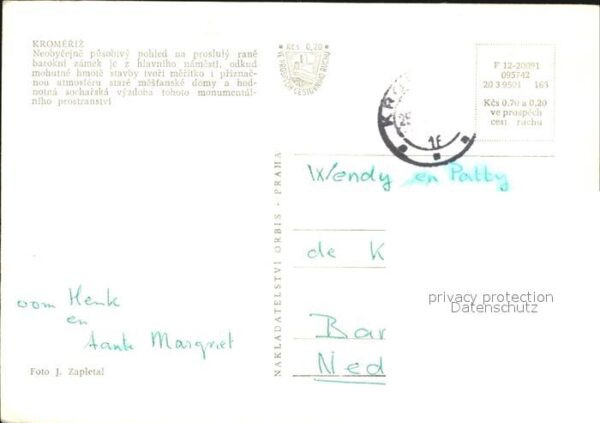 KROMĚŘÍŽ
Neobyčejně působivý pohled na proslulý raně
barokní zámek je z hlavního náměstí, odkud
mohutné hmotě stavby tvoří měřítko i příznač-
nou atmosféru staré měšťanské domy a hod-
notná sochařská výzdoba tohoto monumentál-
ního prostranství
Kčs 0,20
VE PROSPĚCH CESTOVNÍHO RUCHU
F 12-20091
095742
20 3.9501 163
Kčs 0,70 a 0,20
ve prospěch
cest. ruchu
1f
NAKLADATELSTVÍ ORBIS - PRAHA
Wendy en Patty
de K
Bar
Ned
oom Henk
en
tante Margriet
Foto J. Zapletal
privacy protection
Datenschutz